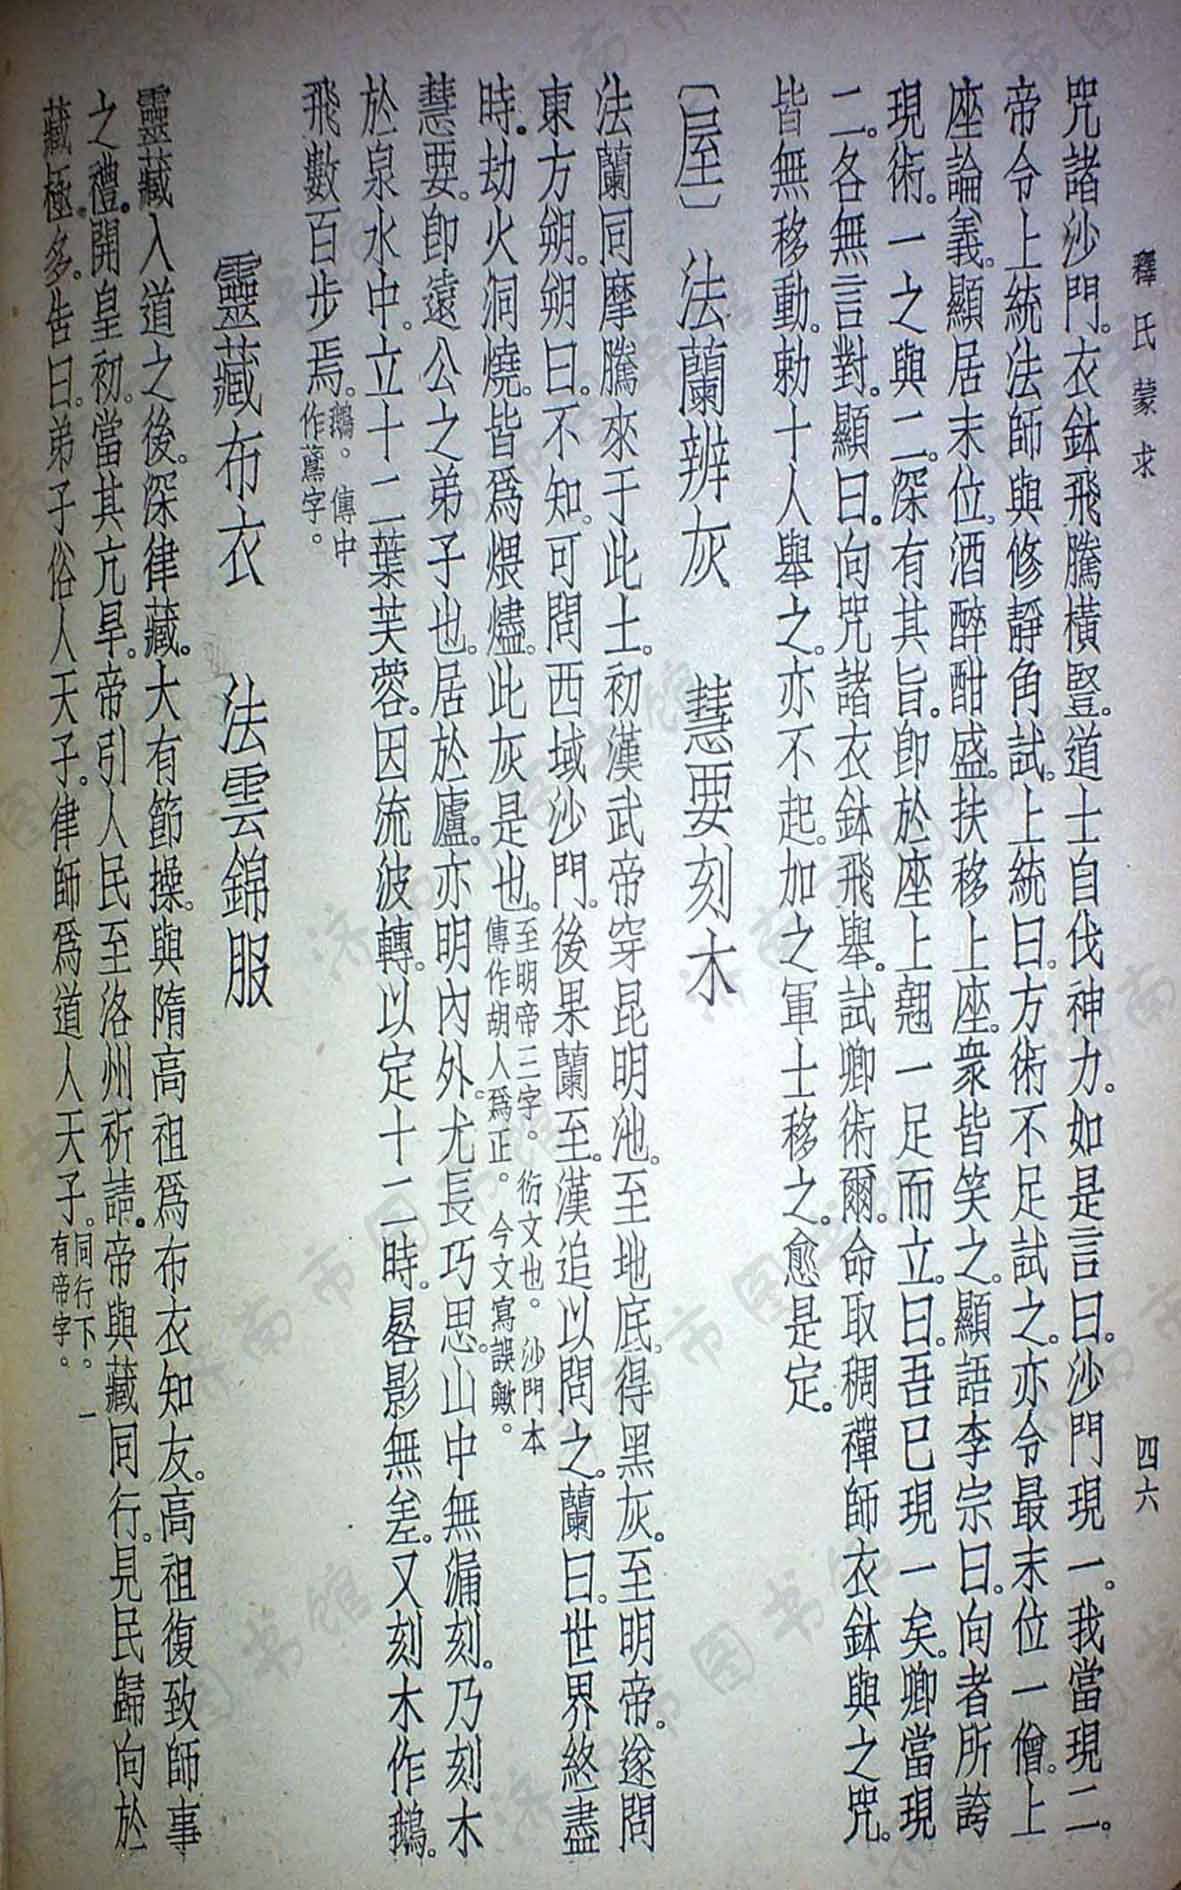 釋氏蒙求
四六
咒諸沙門。衣鉢飛騰橫豎。道士自伐神力。如是言曰。沙門現一。我當現二。
帝令上統法師與修靜角試。上統曰。方術不足試之。亦令最末位一僧。上
座論義。顯居末位。酒醉酣盛。扶移上座。衆皆笑之。顯語李宗曰。向者所誇
現術。一之與二。深有其旨。卽於座上翹一足而立。曰。吾已現一矣。卿當現
二。各無言對。顯曰。向咒諸衣鉢飛舉。試卿術爾。命取稠禪師衣鉢與之咒。
皆無移動。勅十人舉之。亦不起。加之軍士移之。愈是定。
〔屋〕法蘭辨灰　慧要刻木
法蘭同摩騰來于此土。初漢武帝穿昆明池。至地底。得黑灰。至明帝。遂問
東方朔。朔曰。不知。可問西域沙門。後果蘭至。漢追以問之。蘭曰。世界終盡
時。劫火洞燒。皆爲煨燼。此灰是也。至明帝三字。衍文也。沙門本
傳作胡人爲正。今文寫誤歟。
慧要。卽遠公之弟子也。居於廬。亦明內外。尤長巧思。山中無漏刻。乃刻木
於泉水中。立十二葉芙蓉。因流波轉。以定十二時。晷影無差。又刻木作鵝。
飛數百步焉。鵝、傳中
作鳶字。
靈藏布衣　法雲錦服
靈藏入道之後。深律藏。大有節操。與隋高祖爲布衣知友。高祖復致師事
之禮。開皇初。當其亢旱。帝引人民至洛州祈請。帝與藏同行。見民歸向於
藏極多。告曰。弟子俗人天子。律師爲道人天子。同行下。一
有帝字。